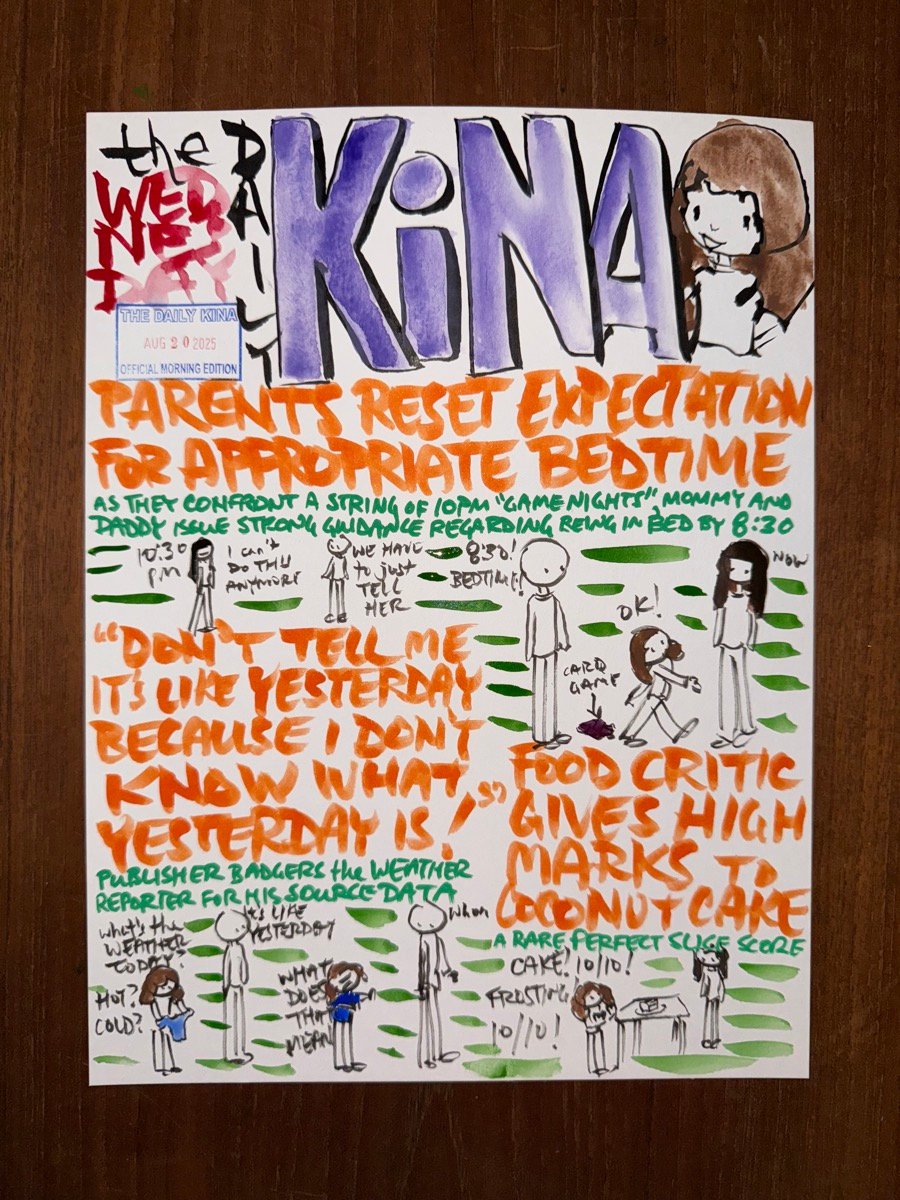 the
DAILY
KiNA
WED
NES
DAY
THE DAILY KINA
AUG 20 2025
OFFICIAL MORNING EDITION
PARENTS RESET EXPECTATION
FOR APPROPRIATE BEDTIME
AS THEY CONFRONT A STRING OF 10PM "GAME NIGHTS" MOMMY AND
DADDY ISSUE STRONG GUIDANCE REGARDING BEING IN BED BY 8:30
10:30
PM
I can't
DO THIS
ANYMORE
WE HAVE
to just
TELL
HER
8:30!
BEDTIME!
OK!
NOW
CARD
GAME
"DON'T TELL ME
IT'S LIKE YESTERDAY
BECAUSE I DON'T
KNOW WHAT
YESTERDAY IS!"
PUBLISHER BADGERS the WEATHER
REPORTER FOR HIS SOURCE DATA
what's the
WEATHER
TODAY?
HOT?
COLD?
it's LIKE
YESTERDAY
WHAT
DOES
THAT
MEAN
FOOD CRITIC
GIVES HIGH
MARKS TO
COCONUT CAKE
A RARE PERFECT SLICE SCORE
CAKE! 10/10!
FROSTING
10/10!